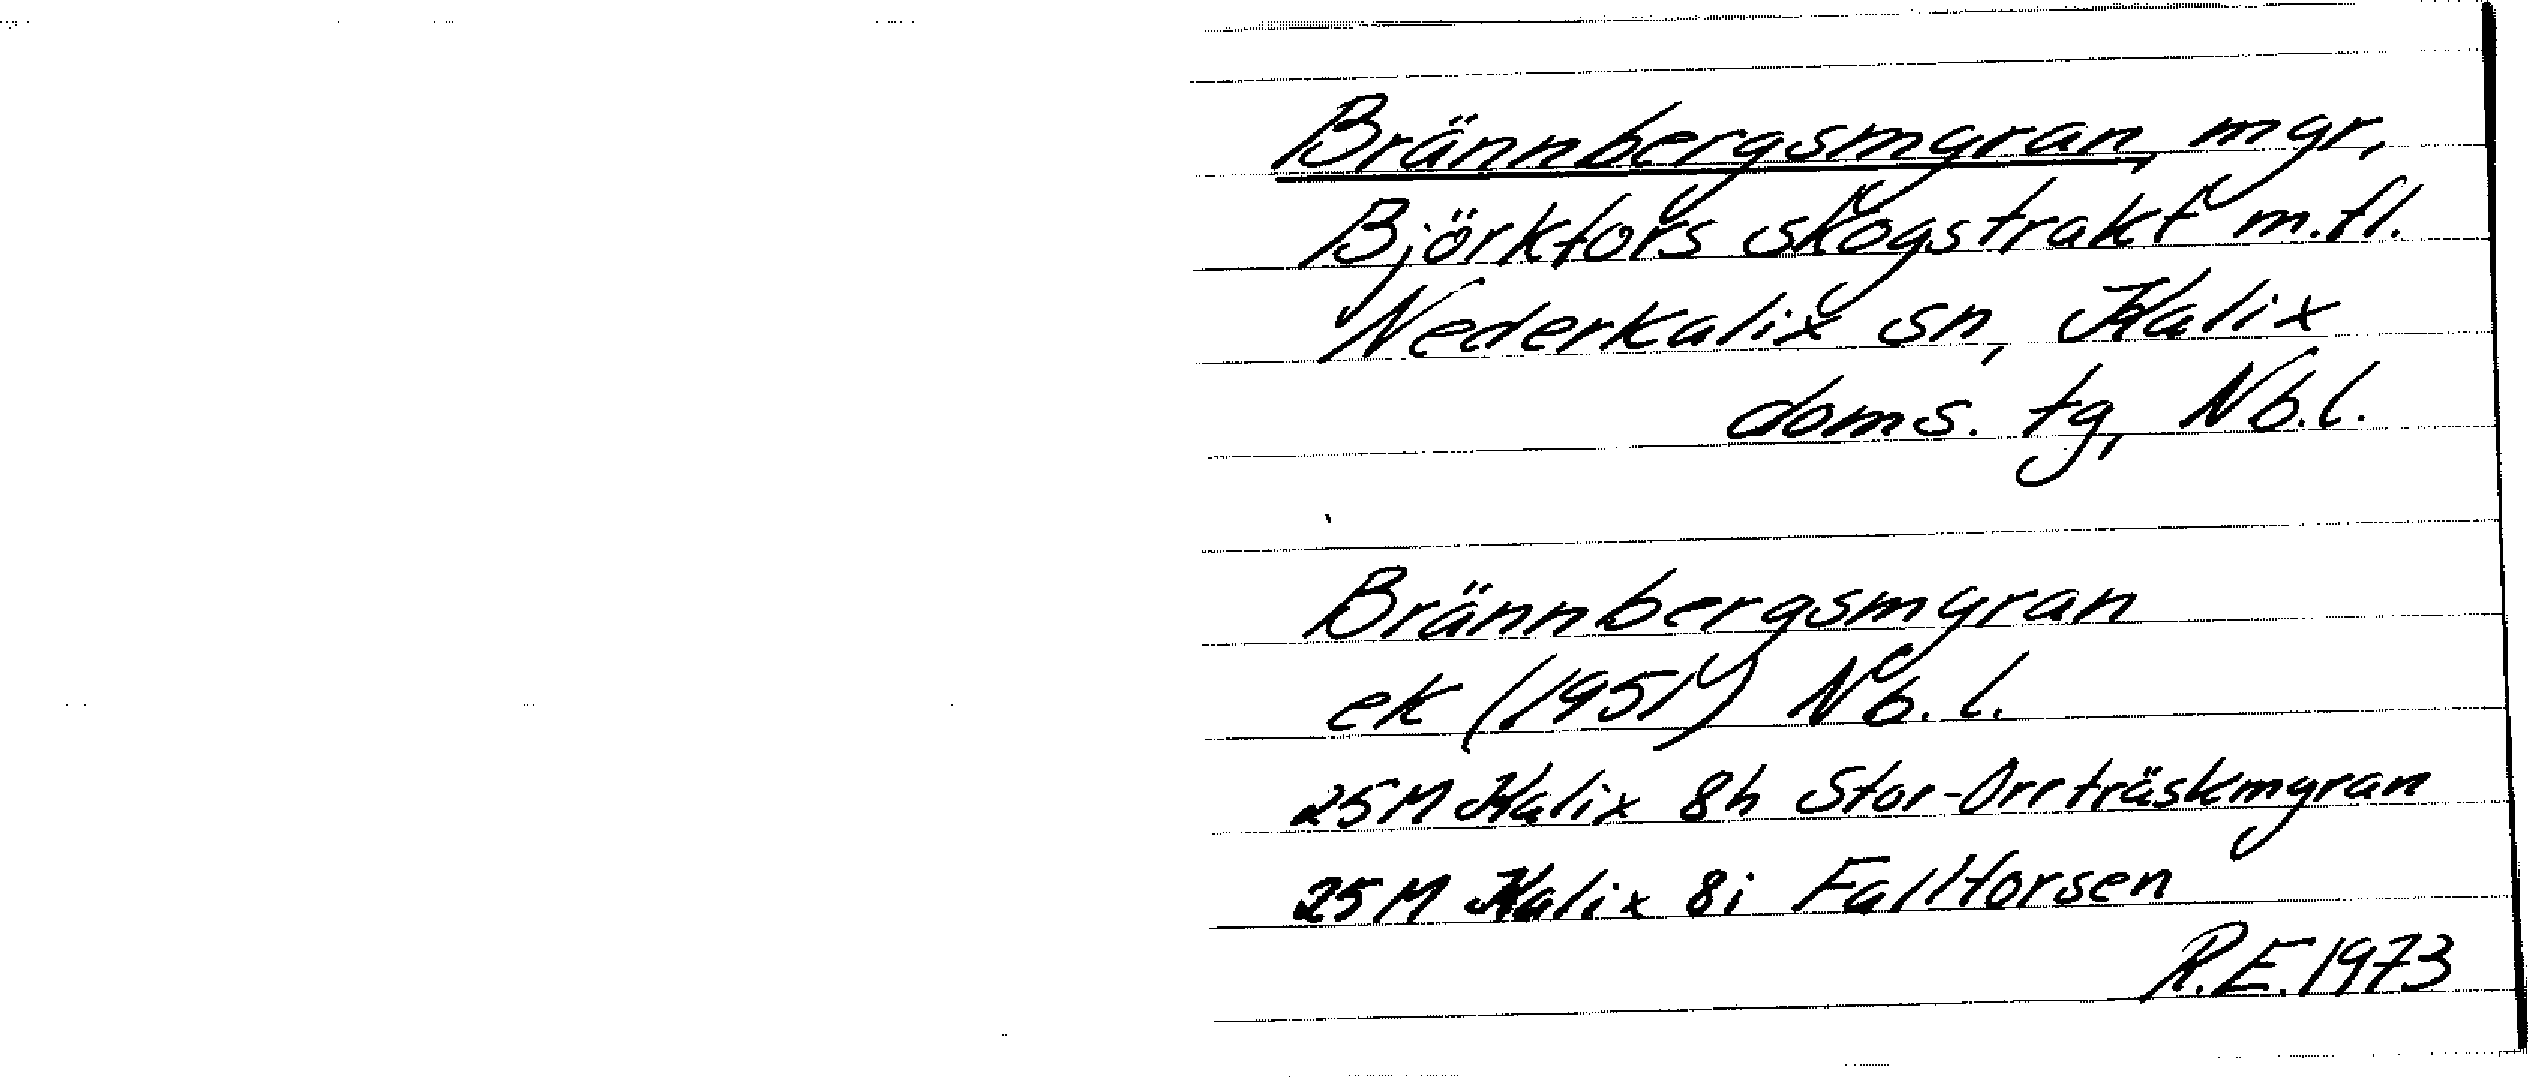 Brännbergsmyran, myr,
Björkfors skogstrakt m.fl.
Nederkalix sn, Kalix
doms. tg, Nb.l.
Brännbergsmyran
ek (1951) Nb.l.
25M Kalix 8h Stor-Orrträskmyran
25M Kalix 8i Fallforsen
R.E. 1973